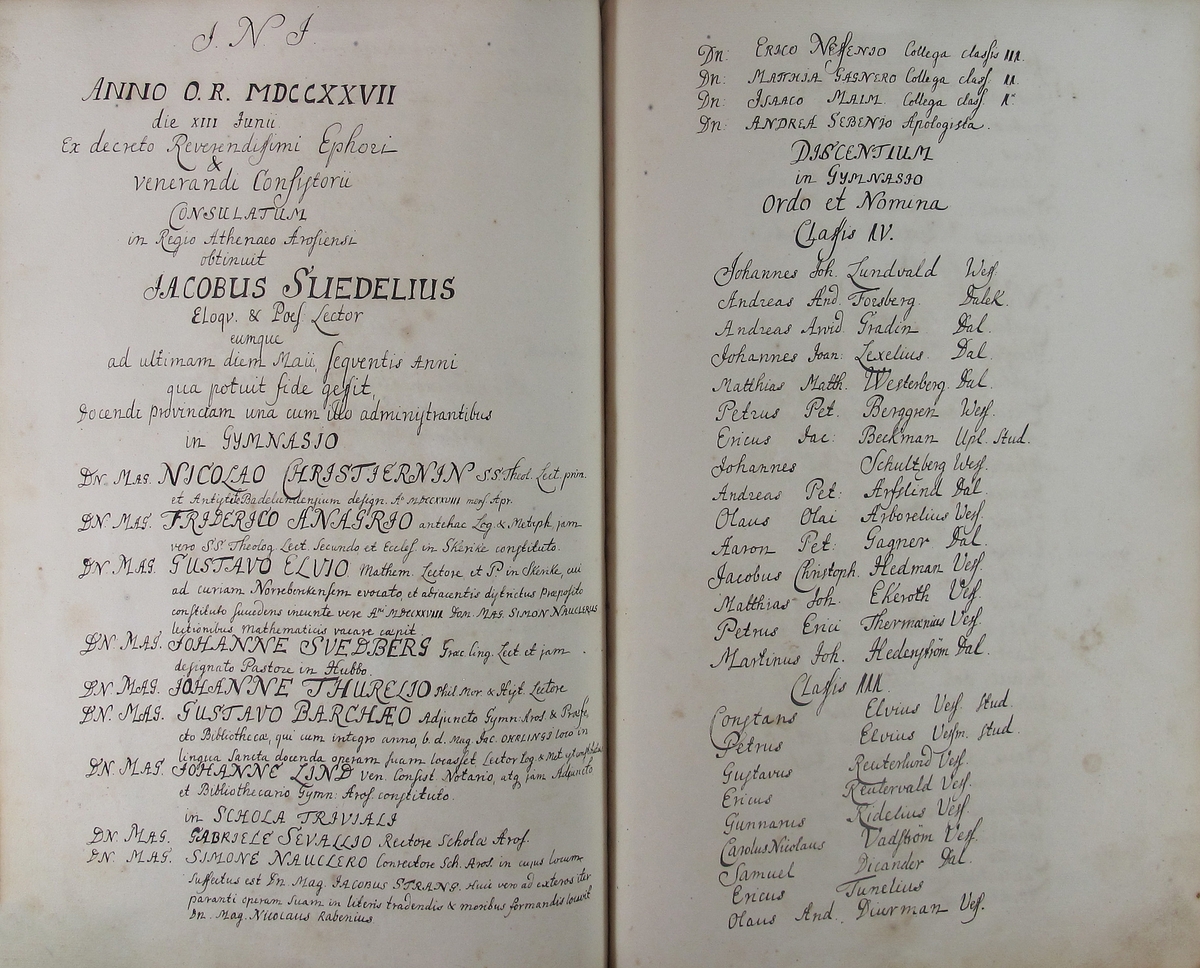 I. N. I.
ANNO O. R. MDCCXXVII
die XIII Junii
Ex decreto Reverendissimi Ephori
&
venerandi Consistorii
CONSULATUM
in Regio Athenaeo Arosiensi
obtinuit
JACOBUS SUEDELIUS
Eloqv. & Poes. Lector
eumque
ad ultimam diem Maii, seqventis Anni
qua potuit fide gessit,
Docendi provinciam una cum illo administrantibus
in GYMNASIO
DN. MAG. NICOLAO CHRISTIERNIN S.S. Theol. Lect. prim.
et Antistite Badelundensium design. Ao MDCCXXVIII mens. Apr.
DN. MAG. FRIDERICO ANAGRIO antehac Log. & Metaph. jam
vero S.S. Theolog. Lect. Secundo et Eccles. in Skerike constituto.
DN. MAG. GUSTAVO ELVIO Mathem. Lectore et P. in Skerike, cui
ad curiam Norreberkensem evocato, et adjacentis districtus Præposito
constituto succedens ineunte vere Ani MDCCXXVIII Dom. MAG. SIMON NAUCLERUS
lectionibus Mathematicis vacare cæpit
DN. MAG. JOHANNE SVEDBERG Græc. ling. Lect et jam
designato Pastore in Hubbo.
DN. MAG. JOHANNE THURELIO Phil. Mor & Hist. Lectore
DN. MAG. GUSTAVO BARCHÆO Adjuncto Gymn. Aros. & Præfe,
cto Bibliothecæ, qui cum integro anno, b. d. Mag. Jac. OHRLINGI loco in
lingua Sancta docenda operam suam locasset Lector Log. & Met.
DN. MAG. JOHANNE LIND ven. Consist. Notario, atq. jam Adjuncto
et Bibliothecario Gymn. Aros. constituto.
in SCHOLA TRIVIALI
DN. MAG. GABRIELE SEVALLIO Rectore Scholæ Aros.
DN. MAG. SIMONE NAUCLERO Conrectore Sch. Aros. in cujus locum
suffectus est Dn. Mag. JACOBUS STRANG. Huic vero ad exteros iter
paranti operam suam in literis tradendis & moribus formandis locavit
Dn. Mag. Nicolaus Rabenius.
Dn: ERICO NESSENIO Collega classis III.
Dn: MATTHIA GAGNERO Collega class. II.
Dn: ISAACO MALM. Collega class. I
Dn: ANDREA SEBENIO Apologista.
DISCENTIUM
in GYMNASIO
Ordo et Nomina
Classis IV.
Johannes Joh. Lundvald Wes.
Andreas And. Forsberg. Dalek.
Andreas Arvid. Gradin Dal.
Johannes Joan: Lexelius. Dal.
Matthias Matth. Westerberg. Dal.
Petrus Pet. Berggren Wes.
Ericus Jac: Beckman Upl. Stud.
Johannes Schultzberg Wes.
Andreas Pet: Arfslind Dal.
Olaus Olai Arborelius Ves.
Aaron Pet: Gagner Dal.
Jacobus Christoph. Hedman Ves.
Matthias Joh. Ekeroth Ves.
Petrus Erici Thermænius Ves.
Martinus Joh. Hederström Dal.
Classis III.
Constans Elvius Ves. Stud.
Petrus Elvius Vesm. Stud.
Gustavus Reuterlund Ves.
Ericus Reutervald Ves.
Gunnarus Kidelius Ves.
Carolus Nicolaus Vadström Ves.
Samuel Dicander Dal.
Ericus Tunelius
Olaus And. Diurman Ves.